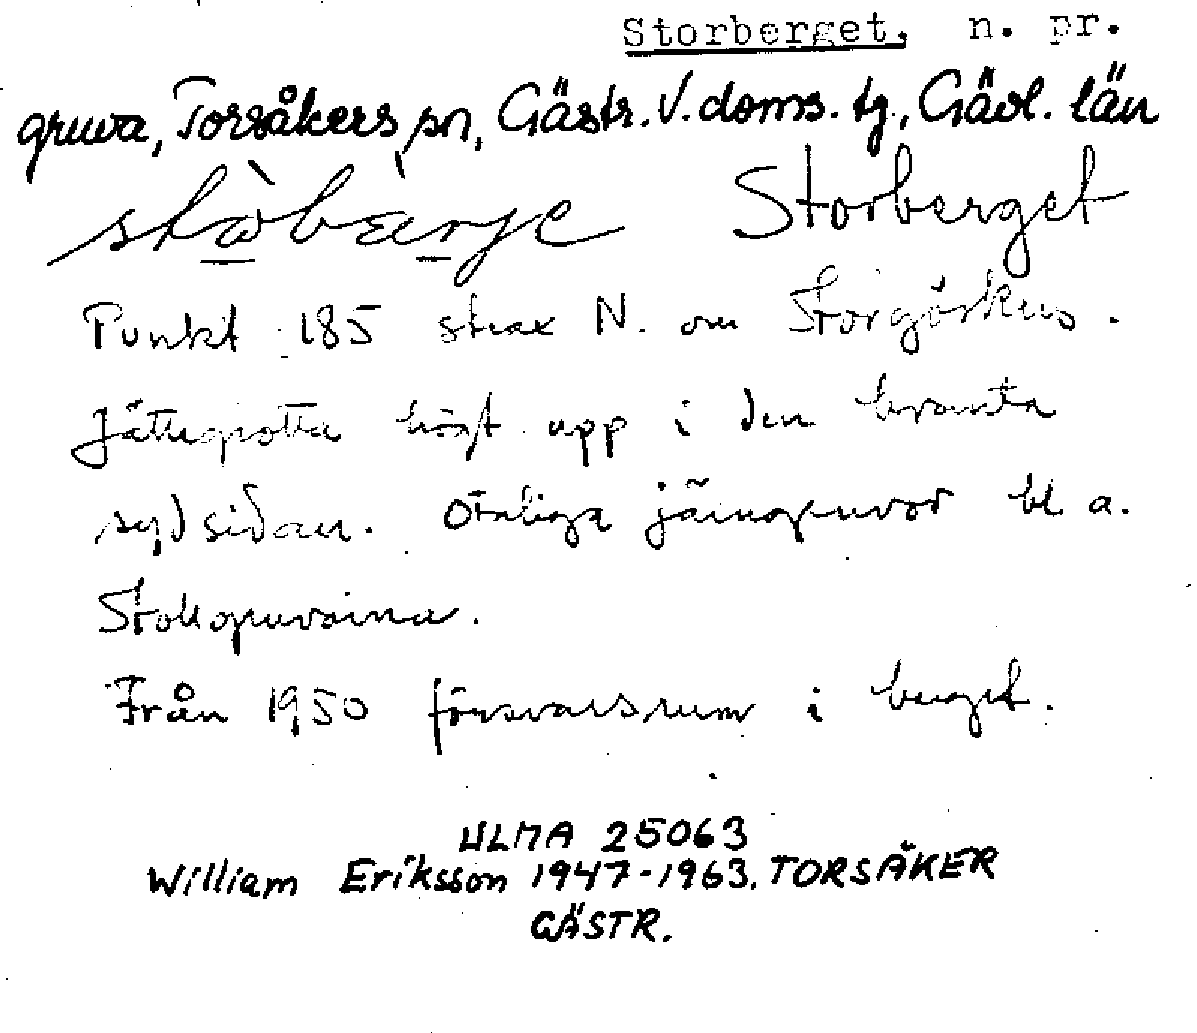 Storberget, n. pr.
gruva, Torsåkers sn, Gästr. V. doms. tg, Gävl. län
Storberget
Punkt 185 strax N. om Storgösken.
Jättegrotta högt upp i den branta
sydsidan. Otaliga järngruvor bl a.
Stollgruvorna.
Från 1950 försvarsrum i berget.
ULMA 25063
William Eriksson 1947-1963. TORSÅKER
GÄSTR.